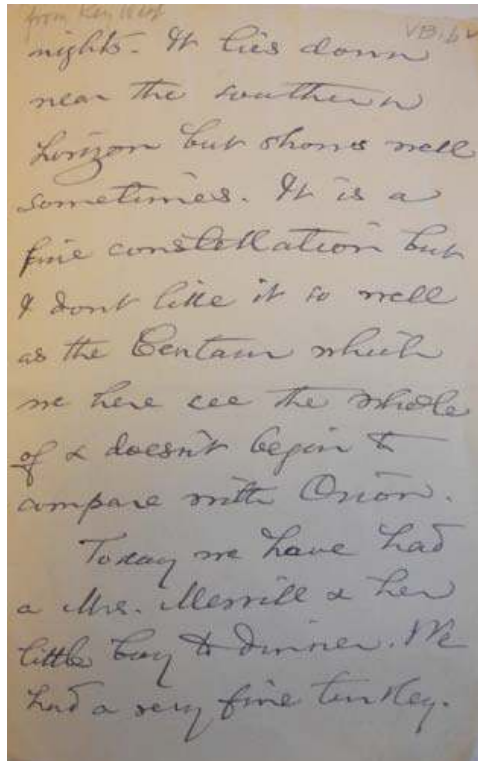 from Key West
VB, b V
nights. It lies down
near the southern
horizon but shows well
sometimes. It is a
fine constellation but
I dont like it so well
as the Centaur which
we here see the whole
of & doesn't begin to
compare with Orion.
Today we have had
a Mrs. Merrill & her
little boy to dinner. We
had a very fine turkey.